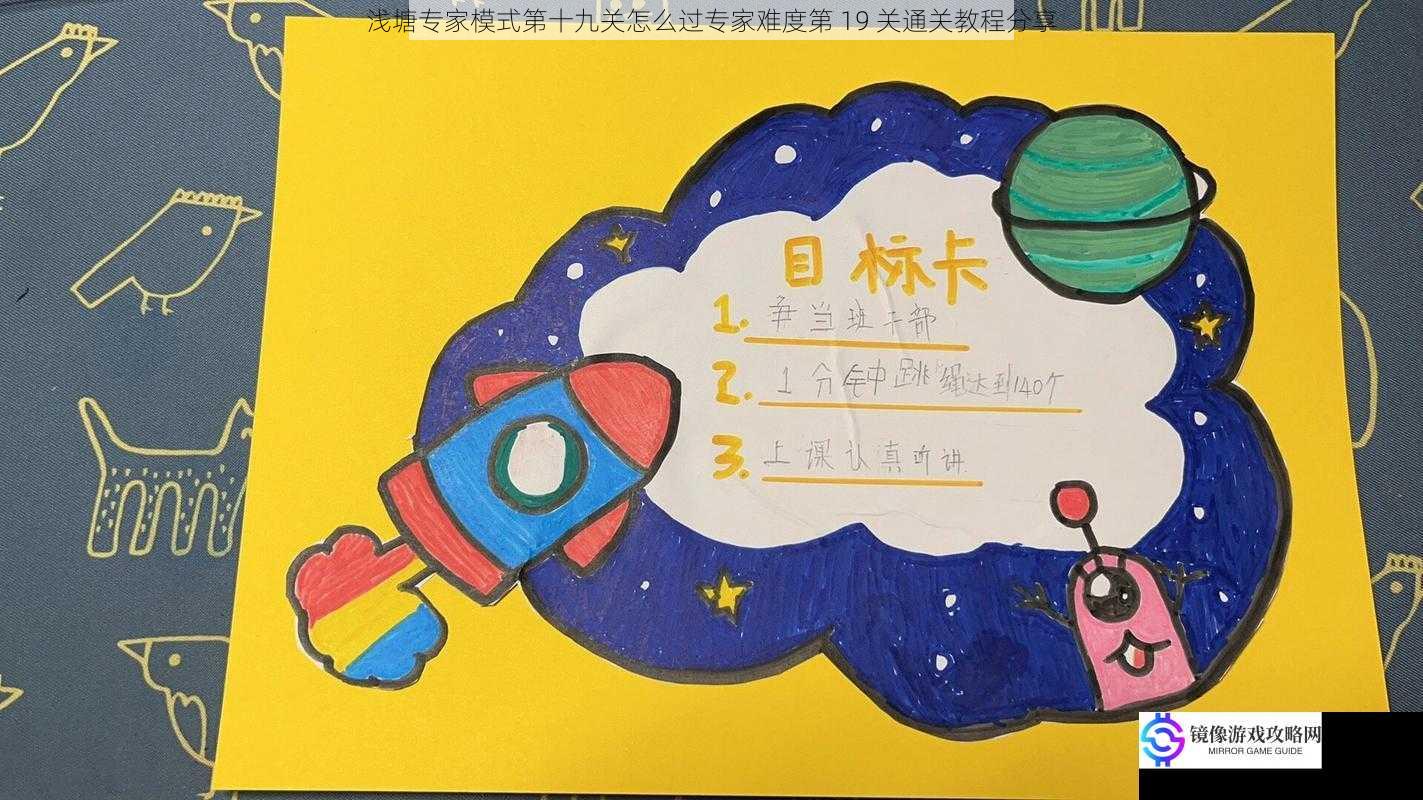 浅塘专家模式第十九关怎么过专家难度第 19 关通关教程分享
目标卡
1. 争当班干部
2. 1分钟跳绳达到140个
3. 上课认真听讲
镜像游戏攻略网
MIRROR GAME GUIDE